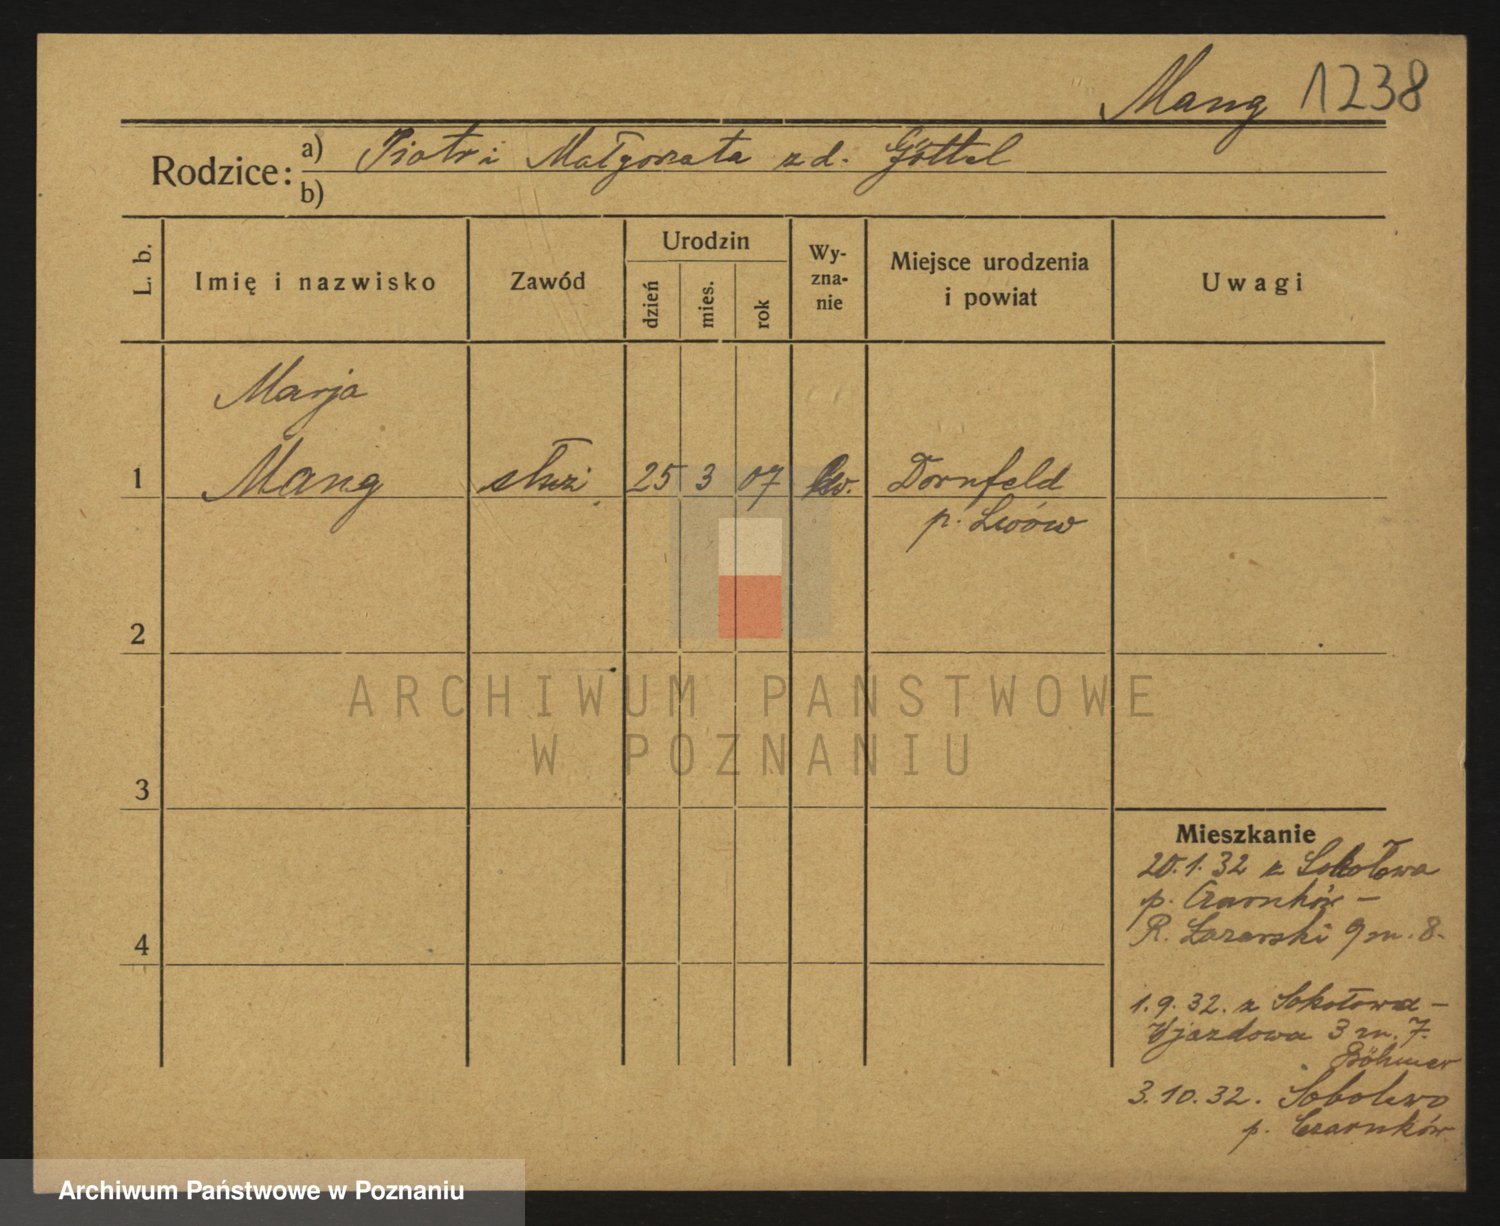 Mang 1238
Rodzice: a) Piotr i Małgorzata z d. Göttel
b)
L. b.
Imię i nazwisko
Zawód
Urodzin
dzień
mies.
rok
Wy-
zna-
nie
Miejsce urodzenia
i powiat
Uwagi
Marja
1 Mang służ. 25 3 07 Ew. Dornfeld
p. Lwów
2
3
4
Mieszkanie
20.1.32 z Sokołowa
p. Czarnków -
R. Łazarski 9 m. 8.
1.9.32. z Sokołowa -
Wjazdowa 3 m. 7.
Böhmer
3.10.32. Sobolewo
p. Czarnków
ARCHIWUM PAŃSTWOWE
W POZNANIU
Archiwum Państwowe w Poznaniu